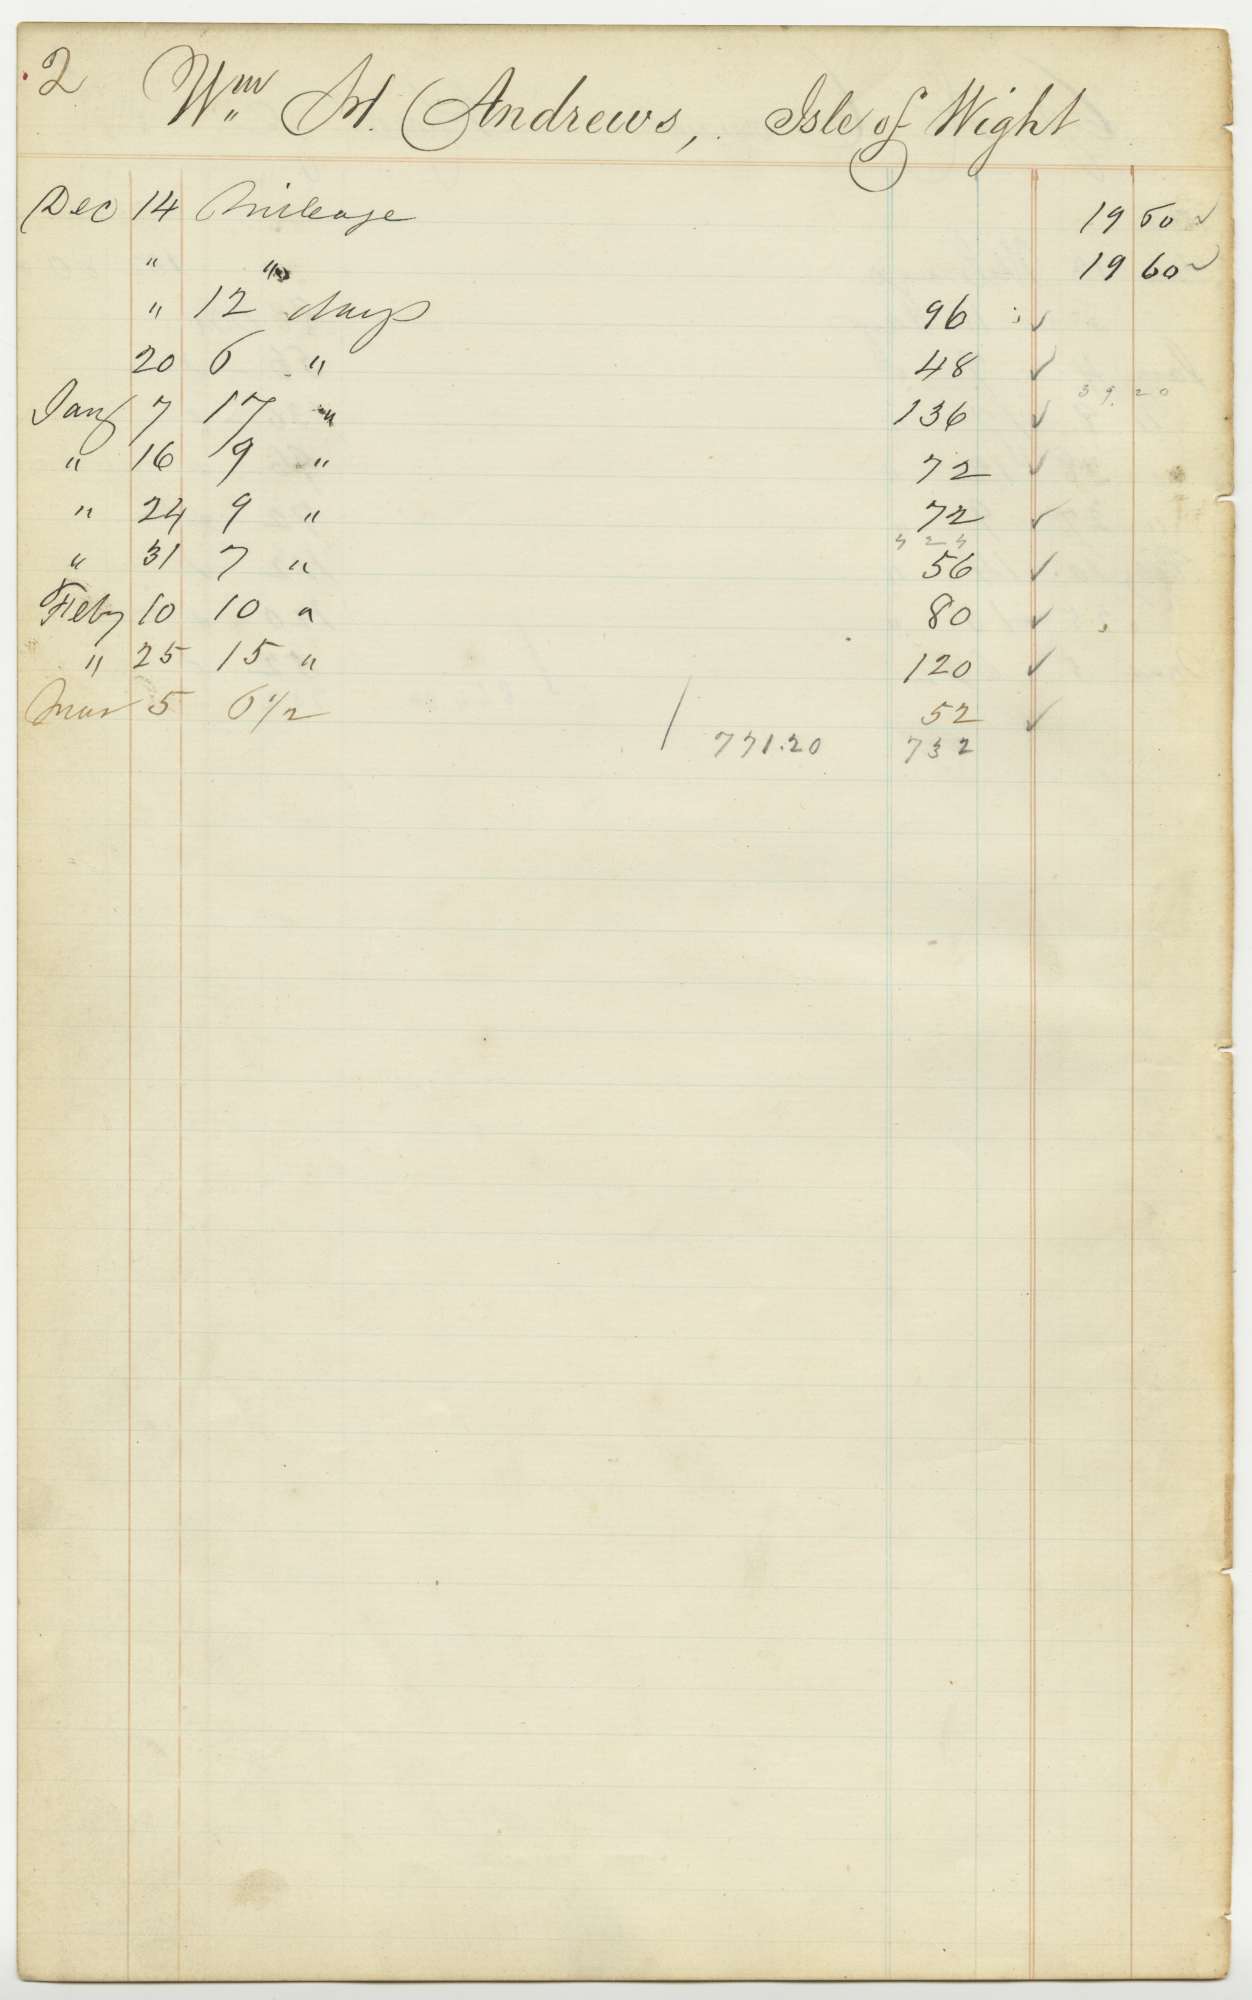 2 Wm H. Andrews, Isle of Wight
Dec 14 Mileage 19 60 ✓
" " 19 60 ✓
" 12 days 96 ✓
20 6 " 48 ✓
39.20
Jany 7 17 " 136 ✓
" 16 9 " 72 ✓
" 24 9 " 72 ✓
424
" 31 7 " 56 ✓
Feby 10 10 " 80 ✓
" 25 15 " 120 ✓
Mar 5 6 1/2 52 ✓
/ 771.20 732